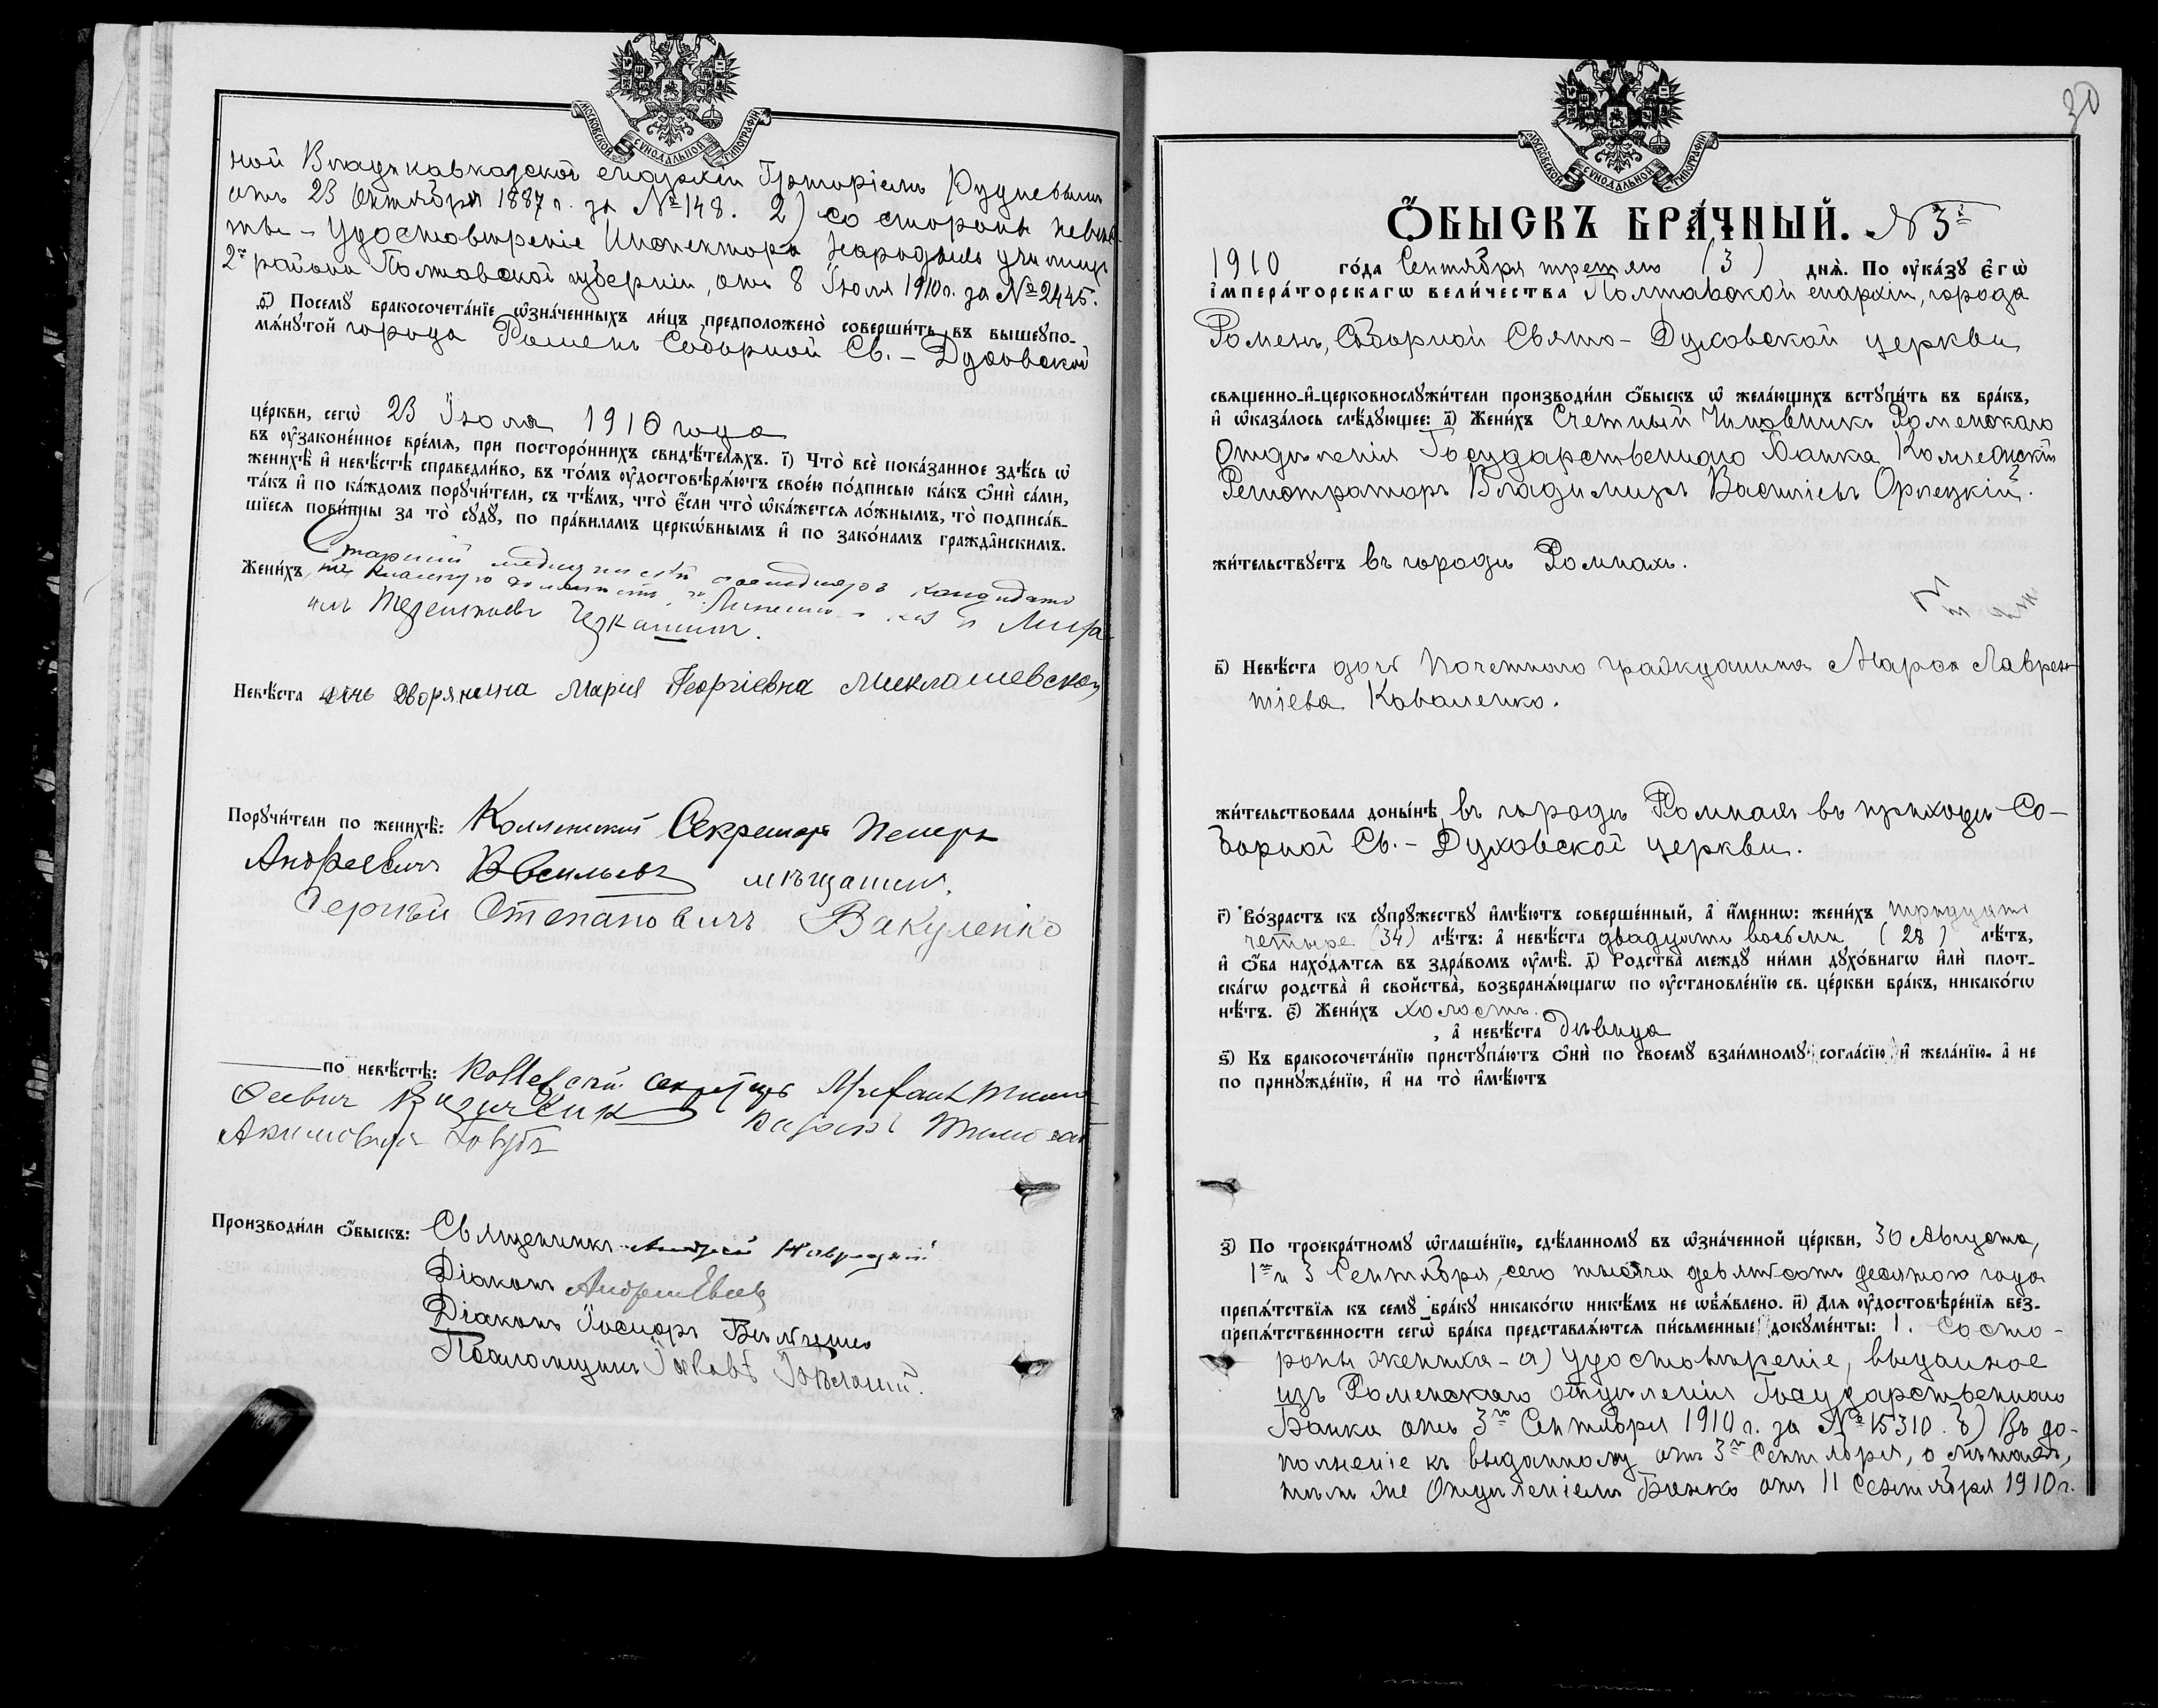 МОСКОВСКОЙ СѴНОДАЛЬНОЙ ТИПОГРАФІИ
ной Владикавказской епархіи Григоріемъ Рудневымъ
отъ 23 Октября 1887 г. за № 148. 2) со стороны невѣс-
ты – Удостовѣреніе Инспектора Народныхъ училищъ
2го района Полтавской губерніи, отъ 8 Іюля 1910 г. за № 2445.
ѳ҃) Посемꙋ бракосочета́нїе ѡ҆зна́ченныхъ ли́цъ предположено̀ соверши́ть въ вышеꙋпо-
мѧ́нꙋтой города Роменъ Соборной Св. – Духовской
це́ркви, сегѡ̀ 23 Іюля 1910 года
въ ᲂу҆законе́нное вре́мѧ, при посторо́ннихъ свидѣ́телѧхъ. і҃) Что̀ всѐ пока́занное здѣ́сь ѡ҆
женихѣ̀ и҆ невѣ́стѣ справедли́во, въ то́мъ ᲂу҆достовѣрѧ́ютъ свое́ю по́дписью ка́къ ѻ҆нѝ са́ми,
та́къ и҆ по ка́ждомъ порꙋчи́тели, съ тѣ́мъ, что̀ є҆́сли что̀ ѡ҆ка́жетсѧ ло́жнымъ, то̀ подписа́в-
шїесѧ пови́нны за то̀ сꙋдꙋ̀, по пра́виламъ церко́внымъ и҆ по зако́намъ гражда́нскимъ.
Жени́хъ Старшій медицинскій фельдшеръ кандидатъ
на классную должность
Терентьевъ
Невѣ́ста дочь дворянина Марія Георгіевна Миклашевская
Порꙋчи́тели по женихѣ̀: Коллежскій Секретарь Петръ
Андреевичъ Васильевъ мѣщанинъ
Сергѣй Степановичъ Вакуленко
по невѣ́стѣ: Коллежскій секретарь
Акимовичъ
Производи́ли ѻ҆́быскъ: Священникъ Андрей
Діаконъ Андрей Евсеевъ
Діаконъ Іосифъ
Псаломщикъ Іаковъ
30
МОСКОВСКОЙ СѴНОДАЛЬНОЙ ТИПОГРАФІИ
Ѻ҆́БЫСКЪ БРА́ЧНЫЙ. № 3й
1910 го́да Сентября третьяго (3) днѧ̀. По ᲂу҆ка́зꙋ Є҆гѡ̀
І҆мпера́торскагѡ вели́чества Полтавской епархіи, города
Роменъ, Соборной Свято – Духовской церкви
свѧщенно-и҆-церковнослꙋжи́тели производи́ли ѻ҆́быскъ ѡ҆ жела́ющихъ встꙋпи́ть въ бра́къ,
и҆ ѡ҆каза́лось слѣ́дꙋющее: а҃) Жени́хъ Счетный Чиновникъ Роменскаго
Отдѣленія Государственнаго Банка Коллежскій
Регистраторъ Владимиръ Васильевъ Орлецкій.
жи́тельствꙋетъ въ городѣ Ромнахъ.
в҃) Невѣ́ста дочь Почетнаго гражданина Марѳа Лаврен-
тіева Коваленко.
жи́тельствовала доны́нѣ въ городѣ Ромнахъ въ приходѣ Со-
борной Св. – Духовской церкви.
г҃) Во́зрастъ къ сꙋпрꙋ́жествꙋ и҆мѣ́ютъ соверше́нный, а҆ и҆́менно: жени́хъ тридцать
четыре (34) лѣ́тъ: а҆ невѣ́ста двадцати восьми (28) лѣ́тъ,
и҆ ѻ҆́ба нахо́дѧтсѧ въ здра́вомъ ᲂу҆мѣ̀. д҃) Родства̀ междꙋ ни́ми дꙋхо́внагѡ и҆лѝ плот-
ска́гѡ родства̀ и҆ свойства̀, возбранѧ́ющагѡ по ᲂу҆становле́нїю св. це́ркви бра́къ, никако́гѡ
нѣ́тъ. є҃) Жени́хъ холостъ
, а҆ невѣ́ста дѣвица
ѕ҃) Къ бракосочета́нїю пристꙋпа́ютъ ѻ҆нѝ по своемꙋ̀ взаи́мномꙋ согла́сїю и҆ жела́нїю, а҆ не
по принꙋжде́нїю, и҆ на то̀ и҆мѣ́ютъ
з҃) По троекра́тномꙋ ѡ҆глаше́нїю, сдѣ́ланномꙋ въ ѡ҆зна́ченной це́ркви, 30 Августа,
1го и 3 Сентября, сего тысяча девятьсотъ десятаго года
препѧ́тствїѧ къ семꙋ̀ бра́кꙋ никако́гѡ никѣ́мъ не ѡ҆б̾ѧ́влено. и҃) Длѧ̀ ᲂу҆достовѣре́нїѧ без-
препѧ́тственности сегѡ̀ бра́ка представлѧ́ютсѧ пи́сьменные докꙋме́нты: 1. Со сто-
роны жениха – а) Удостовѣреніе, выданное
изъ Роменскаго отдѣленія Государственнаго
Банка отъ 3го Сентября 1910 г. за № 15310. б) Въ до-
полненіе къ выданному отъ 3го Сентября, о лѣтахъ,
тѣмъ же Отдѣленіемъ Банка отъ 11 Сентября 1910 г.